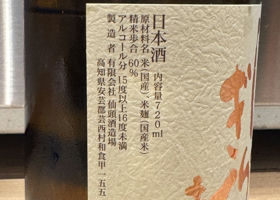 日本酒 内容量720ml
原材料名 米(国産)、米麹(国産米)
精米歩合 60%
アルコール分 15度以上16度未満
製造者 有限会社仙頭酒造場
高知県安芸郡芸西村和食甲一五五